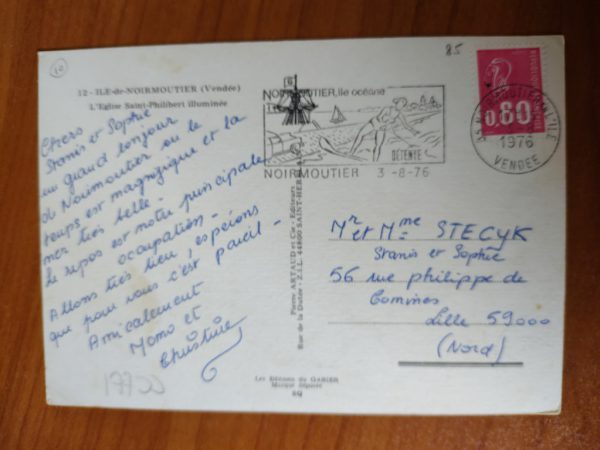 10
85
12 - ILE-de-NOIRMOUTIER (Vendée)
L'Eglise Saint-Philibert illuminée
Chers
Stanis et Sophie
un grand bonjour
de Noirmoutier ou le
temps est magnifique et la
mer très belle -
Le repos est notre principale
occupation -
Allons très bien, espérons
que pour vous c'est pareil -
Amicalement
Momo et
Christine
NOIRMOUTIER, île océane
DÉTENTE
NOIRMOUTIER 3 -8-76
0.80
1976
VENDEE
Pierre ARTAUD et Cie - Editeurs
Rue de la Dutée - Z.I.L. 44800 SAINT-HERBLAIN
Mr et Mme STECYK
Stanis et Sophie
56 rue philippe de
Comines
Lille 59000
(Nord)
Les Editions du GABIER
Marque déposée
SQ